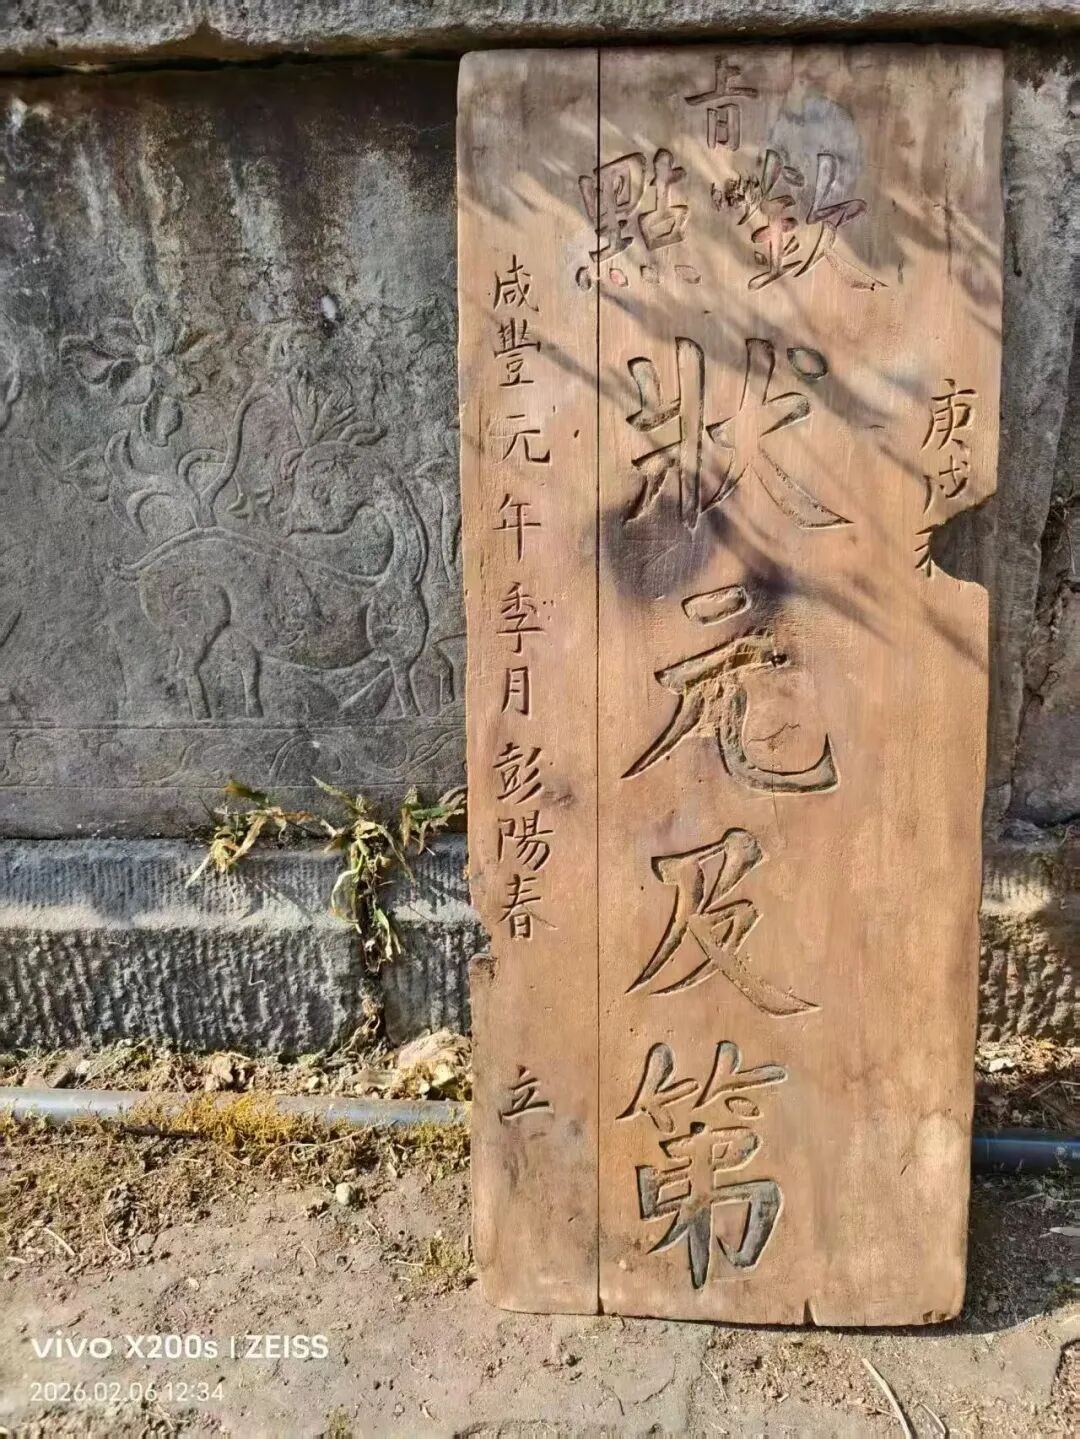 庚戌
旨
欽點
狀元及第
咸豐元年季月彭陽春 立
vivo X200s | ZEISS
2026.02.06 12:34